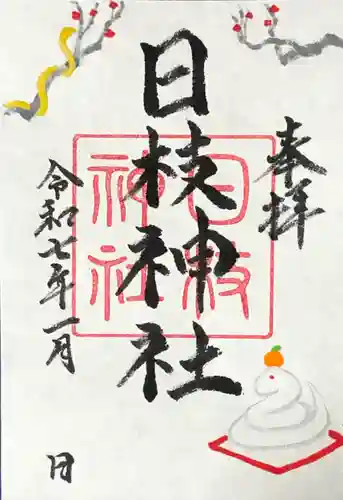 奉拝
日枝神社
日枝
神社
令和七年一月
日